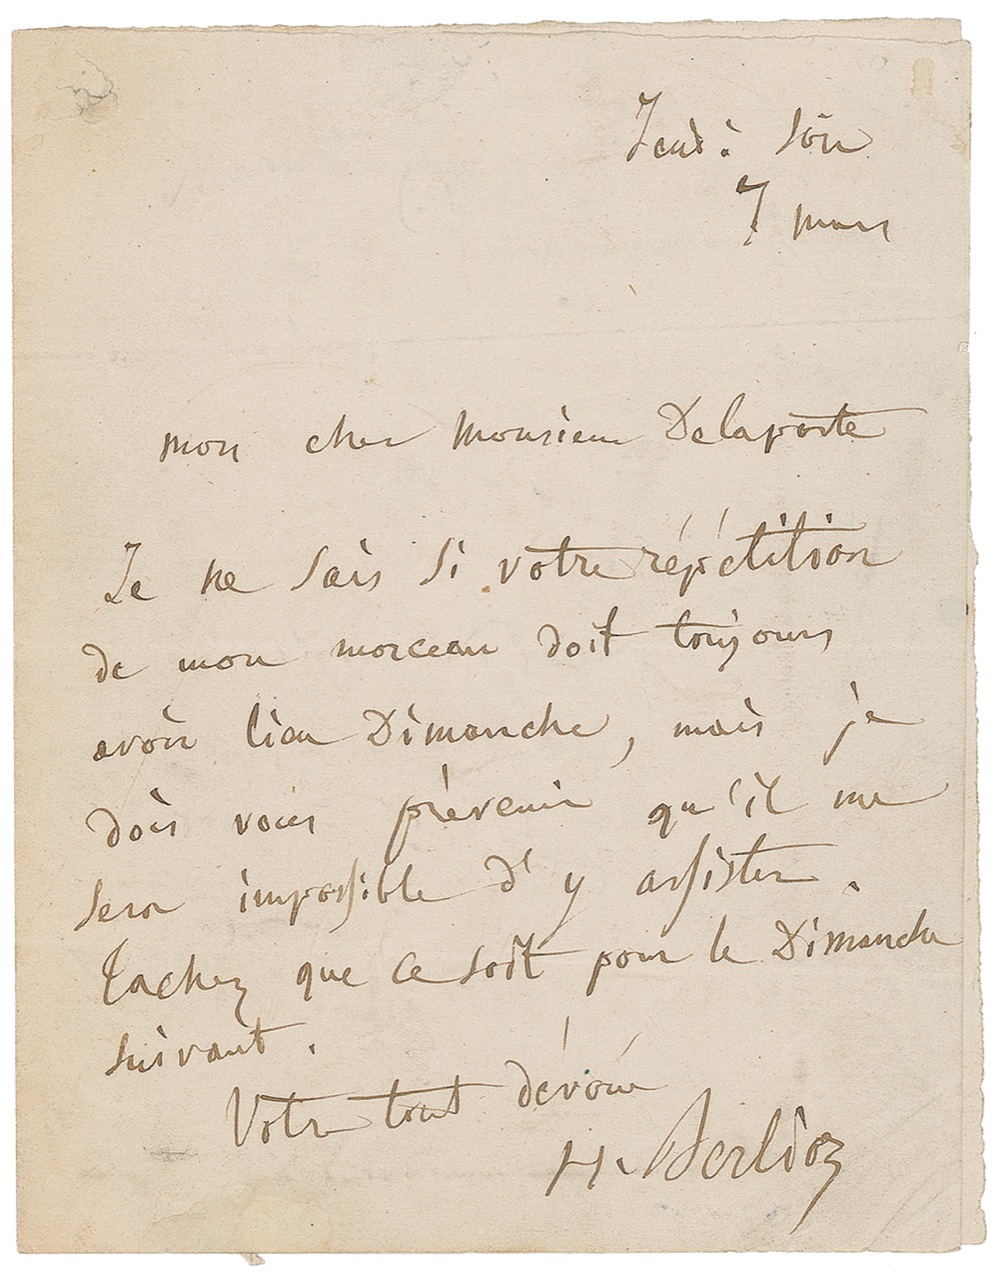 Jeudi soir
7 mars
mon cher Monsieur Delaporte
Je ne sais si votre répétition
de mon morceau doit toujours
avoir lieu Dimanche, mais je
dois vous prévenir qu'il me
sera impossible d'y assister.
Tachez que ce soit pour le Dimanche
suivant.
Votre tout dévoué
H. Berlioz